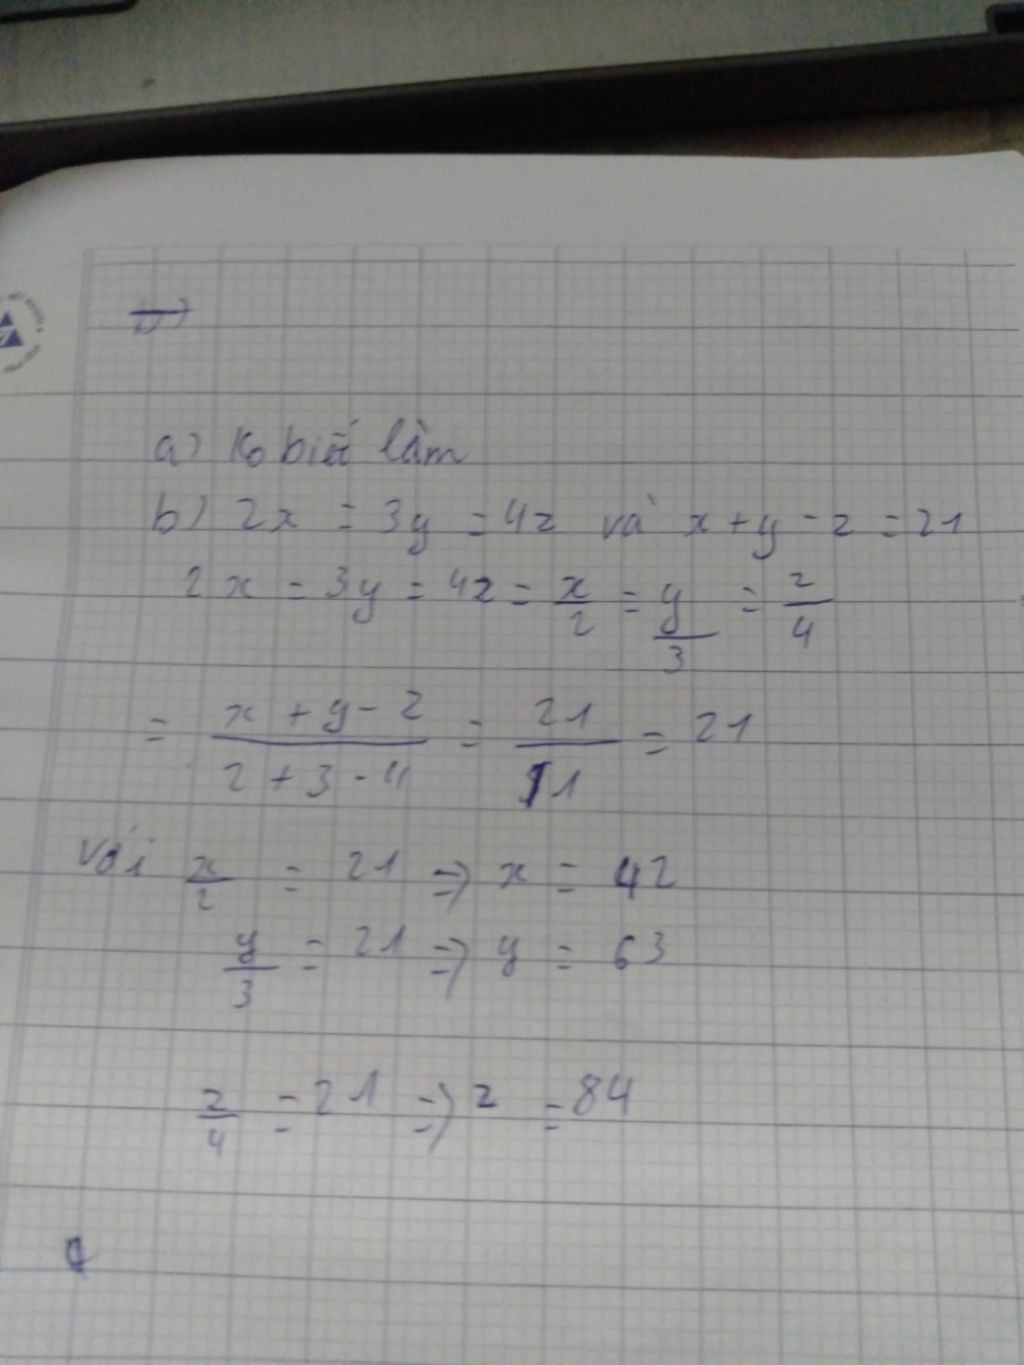 a) Ko biết làm
b) 2x = 3y = 4z và x + y - z = 21
2x = 3y = 4z = x/2 = y/3 = z/4
= (x + y - z)/(2 + 3 - 4) = 21/1 = 21
với x/2 = 21 => x = 42
y/3 = 21 => y = 63
z/4 = 21 => z = 84